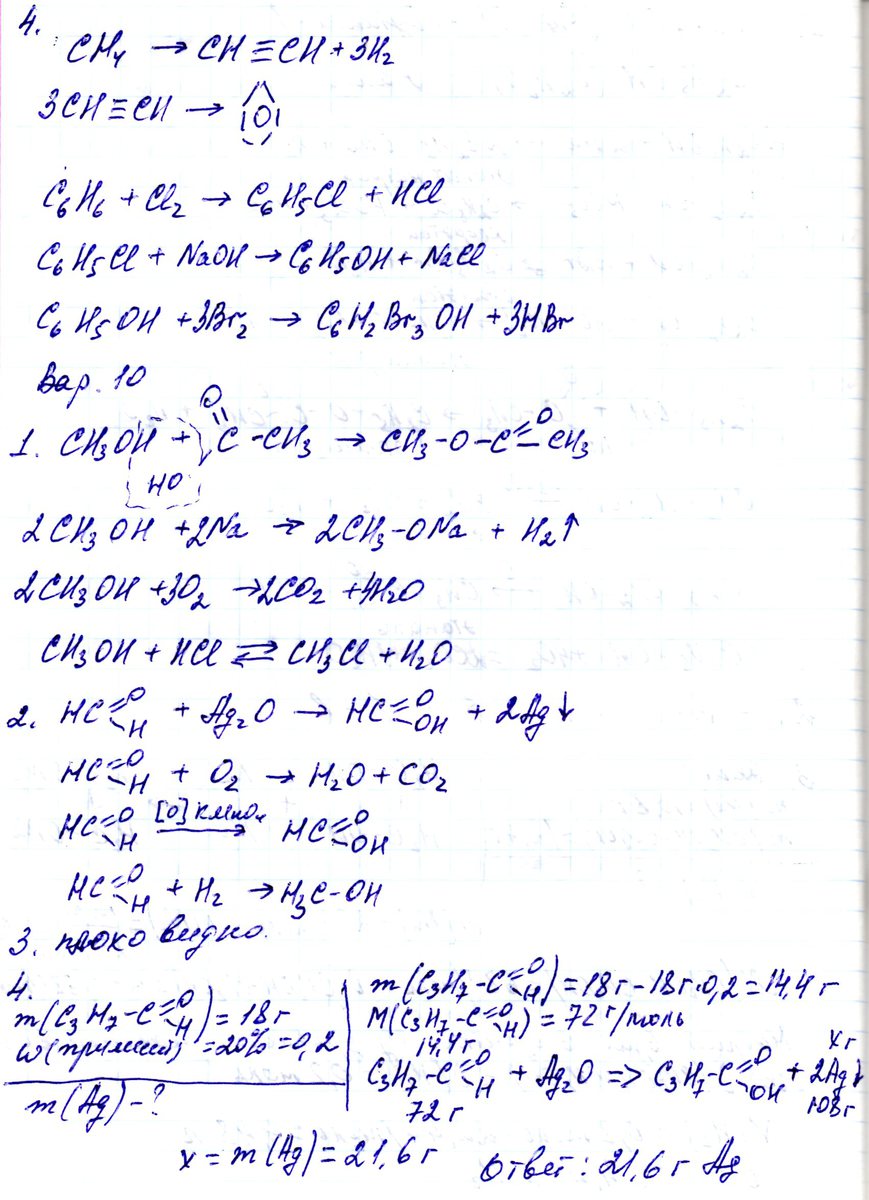 4.
CH₄ → CH≡CH + 3H₂
3CH≡CH →
C₆H₆ + Cl₂ → C₆H₅Cl + HCl
C₆H₅Cl + NaOH → C₆H₅OH + NaCl
C₆H₅OH + 3Br₂ → C₆H₂Br₃OH + 3HBr
Вар. 10
1. CH₃OH + HO C(=O)-CH₃ → CH₃-O-C(=O)-CH₃
2CH₃OH + 2Na → 2CH₃-ONa + H₂↑
2CH₃OH + 3O₂ → 2CO₂ + 4H₂O
CH₃OH + HCl ⇄ CH₃Cl + H₂O
2. HC(=O)-H + Ag₂O → HC(=O)-OH + 2Ag↓
HC(=O)-H + O₂ → H₂O + CO₂
HC(=O)-H [O] KMnO₄ → HC(=O)-OH
HC(=O)-H + H₂ → H₃C-OH
3. плохо видно.
4.
m(C₃H₇-C(=O)-H) = 18 г
ω(примесей) = 20% = 0,2
m(Ag) - ?
m(C₃H₇-C(=O)-H) = 18 г - 18 г·0,2 = 14,4 г
M(C₃H₇-C(=O)-H) = 72 г/моль
14,4 г x г
C₃H₇-C(=O)-H + Ag₂O => C₃H₇-C(=O)-OH + 2Ag↓
72 г 108 г
x = m(Ag) = 21,6 г Ответ: 21,6 г Ag